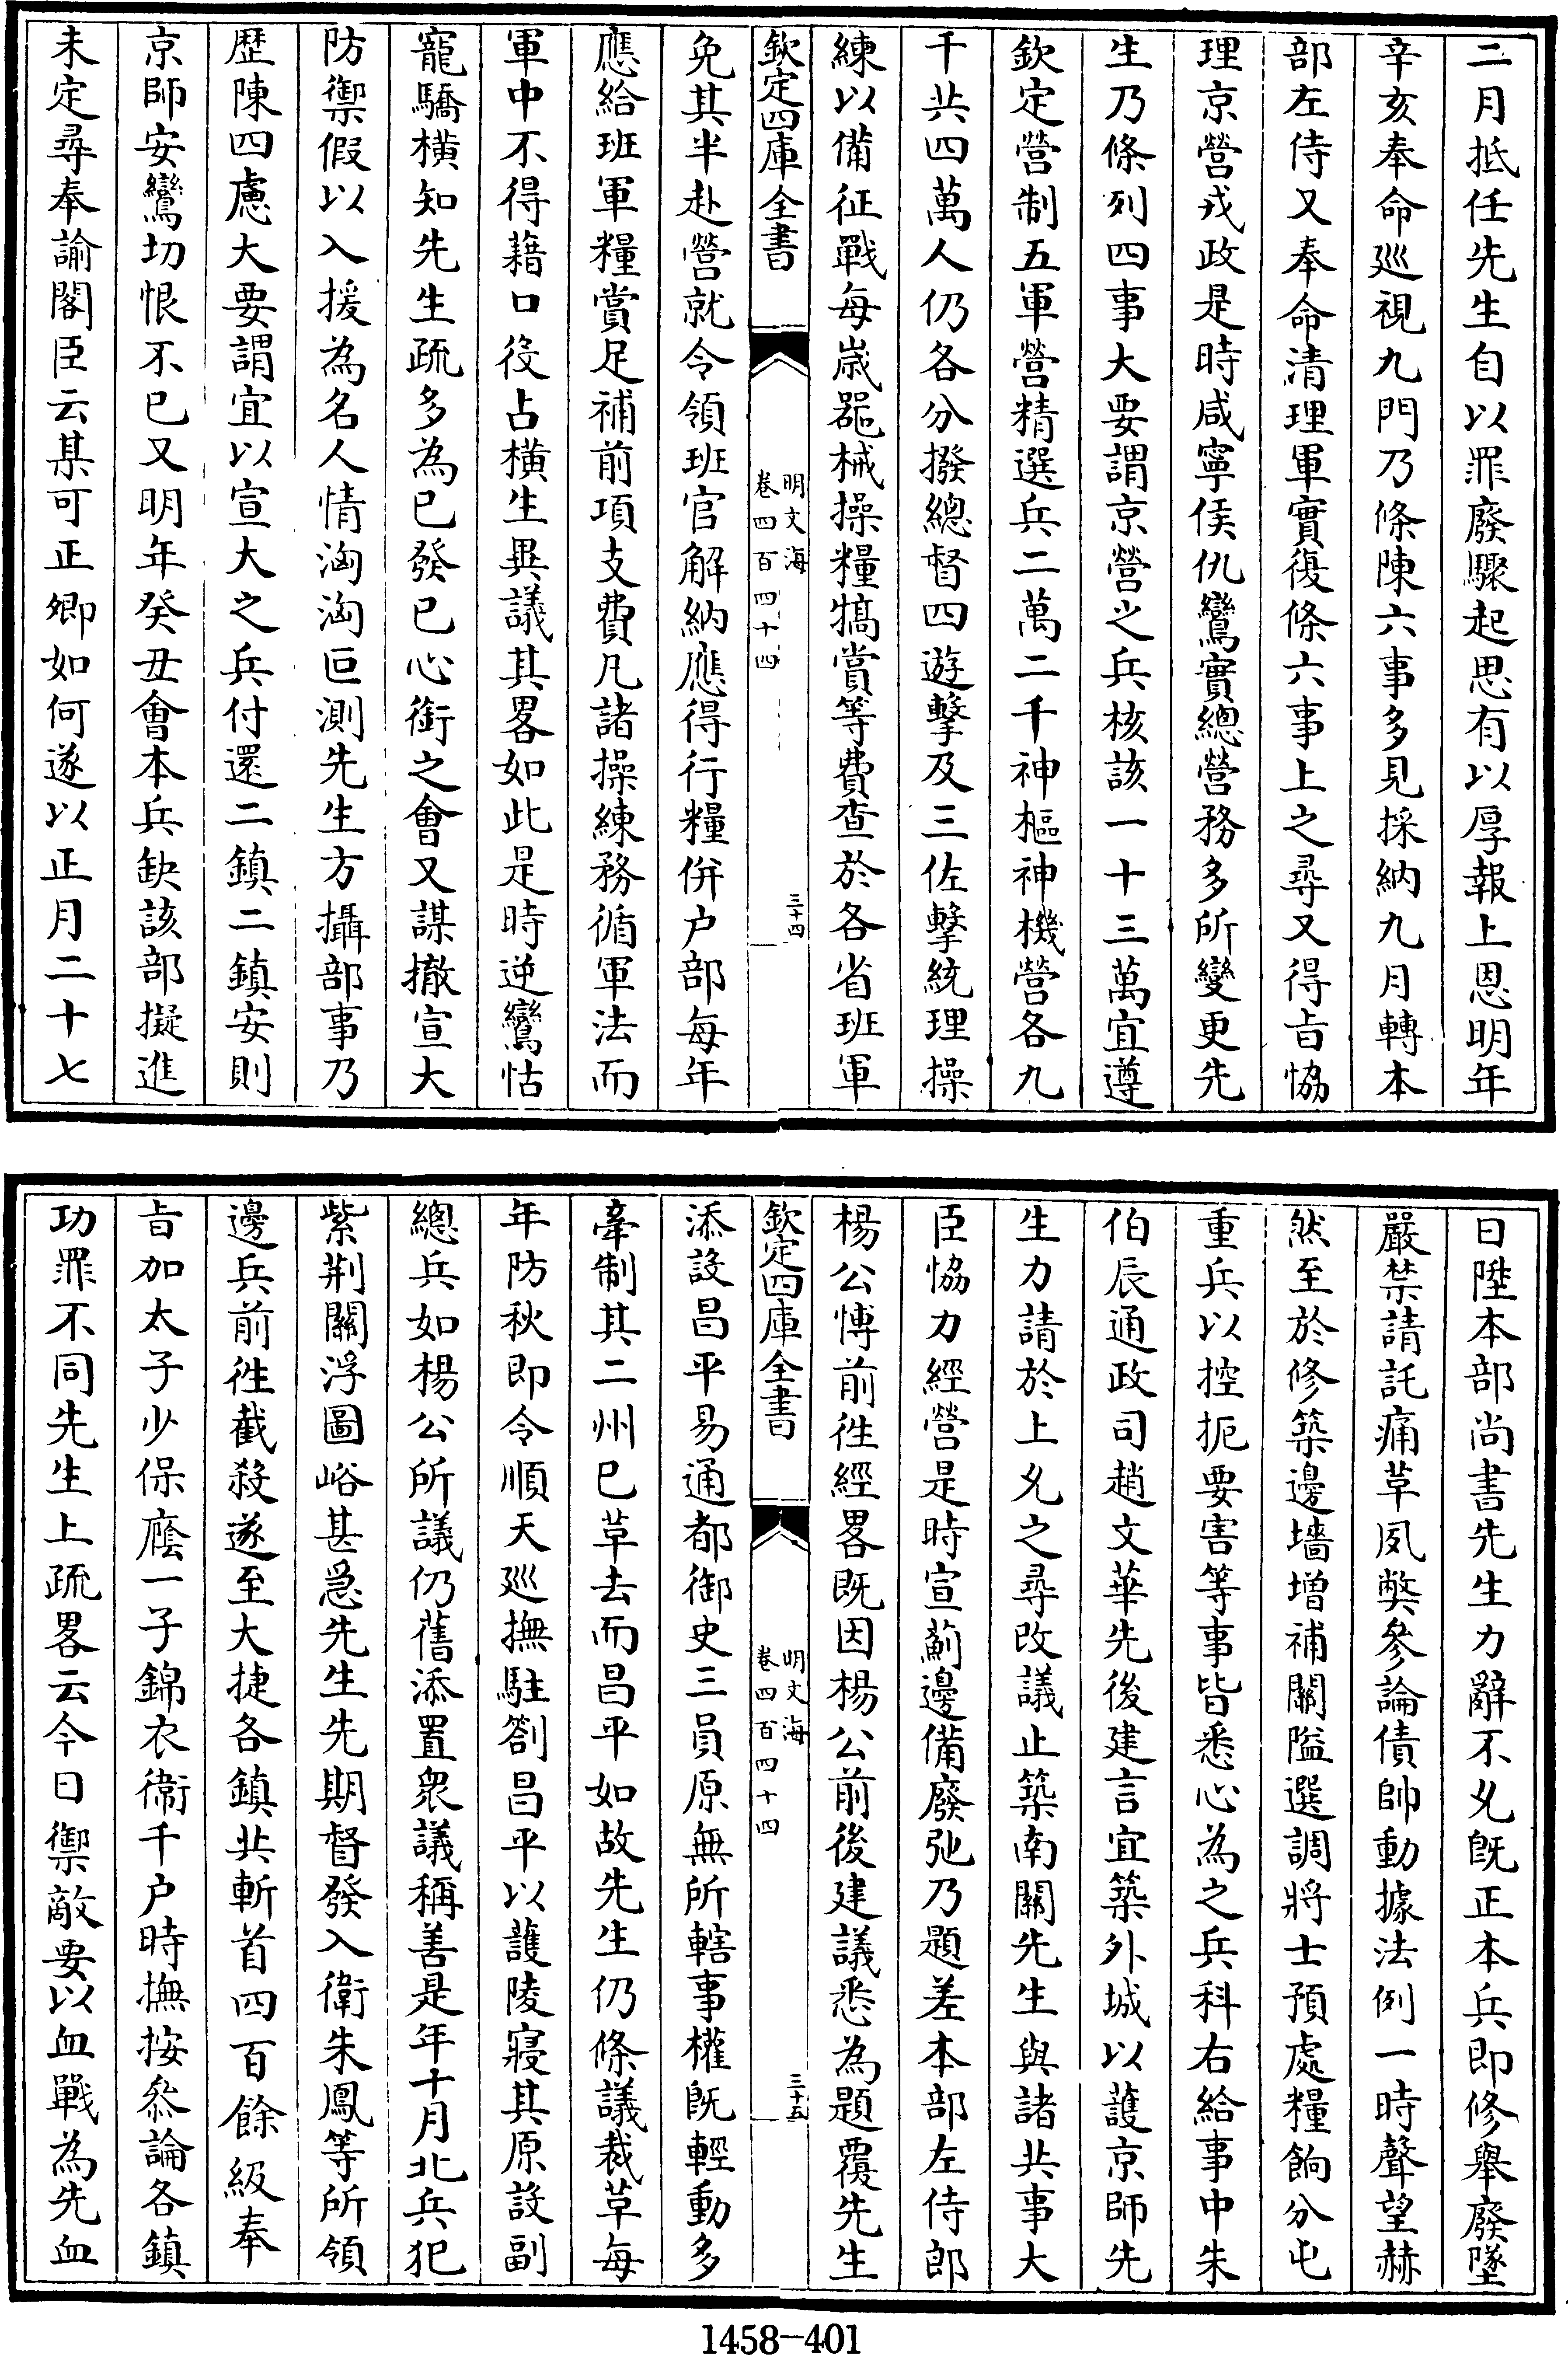 二月抵任先生自以罪廢驟起思有以厚報上恩明年
辛亥奉命廵視九門乃條陳六事多見採納九月轉本
部左侍又奉命清理軍實復條六事上之尋又得㫖恊
理京營戎政是時咸寧侯仇鸞實總營務多所變更先
生乃條列四事大要謂京營之兵核該一十三萬宜遵
欽定營制五軍營精選兵二萬二千神樞神機營各九
千共四萬人仍各分撥總督四遊擊及三佐擊統理操
練以備征戰每嵗噐械操糧犒賞等費查於各省班軍
欽定四庫全書
明文海
卷四百四十四
三十四
免其半赴營就令領班官解納應得行糧併户部每年
應給班軍糧賞足補前項支費凡諸操練務循軍法而
軍中不得藉口役占横生異議其畧如此是時逆鸞怙
寵驕橫知先生疏多為已發已心銜之會又謀撤宣大
防禦假以入援為名人情洶洶叵測先生方攝部事乃
歴陳四慮大要謂宜以宣大之兵付還二鎮二鎮安則
京師安鸞切恨不已又明年癸丑會本兵缺該部擬進
未定尋奉諭閣臣云某可正卿如何遂以正月二十七
日陞本部尚書先生力辭不允既正本兵即修舉廢墜
嚴禁請託痛草夙弊參論債帥動據法例一時聲望赫
然至於修築邊墻增補關隘選調將士預處糧餉分屯
重兵以控扼要害等事皆悉心為之兵科右給事中朱
伯辰通政司趙文華先後建言宜築外城以護京師先
生力請於上允之尋改議止築南關先生與諸共事大
臣恊力經營是時宣薊邊備廢弛乃題差本部左侍郎
楊公博前徃經畧既因楊公前後建議悉為題覆先生
欽定四庫全書
明文海
卷四百四十四
三十五
添設昌平易通都御史三員原無所轄事權既輕動多
牽制其二州已草去而昌平如故先生仍條議裁草每
年防秋即令順天廵撫駐劄昌平以護陵寢其原設副
總兵如楊公所議仍舊添置衆議稱善是年十月北兵犯
紫荆關浮圖峪甚急先生先期督發入衛朱鳳等所領
邊兵前徃截殺遂至大捷各鎮共斬首四百餘級奉
㫖加太子少保廕一子錦衣衛千户時撫按叅論各鎮
功罪不同先生上疏畧云今日禦敵要以血戰為先血
1458-401